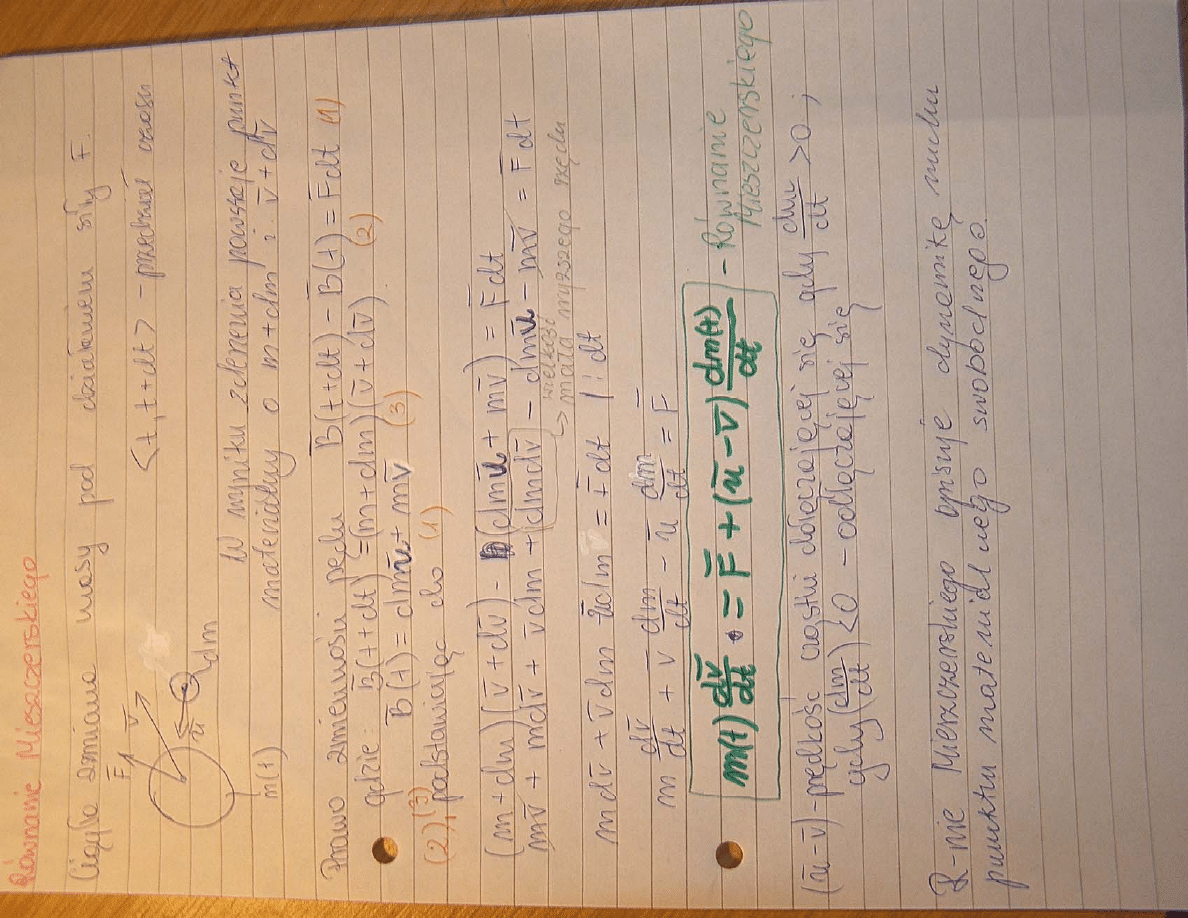 Równanie Mieszczerskiego
Ciągła zmiana masy pod działaniem siły F.
<t, t+dt> - przedział czasu
F̄ v̄
ū dm
m(t)
W wyniku zderzenia powstaje punkt
materialny o m+dm i v̄+dv̄
Prawo zmienności pędu B̄(t+dt) - B̄(t) = F̄dt (1)
gdzie: B̄(t+dt) = (m+dm)(v̄+dv̄) (2)
B̄(t) = dmū + mv̄ (3)
(2), (3) podstawiając do (1)
(m+dm)(v̄+dv̄) - (dmū + mv̄) = F̄dt
mv̄ + mdv̄ + v̄dm + dmdv̄ - dmū - mv̄ = F̄dt
wielkość
↳ mała wyższego rzędu
mdv̄ + v̄dm - ūdm = F̄dt |: dt
m dv̄/dt + v̄ dm/dt - ū dm/dt = F̄
m(t) dv̄/dt = F̄ + (ū - v̄) dm(t)/dt - Równanie
Mieszczerskiego
(ū - v̄) - prędkość cząstki dołączającej się gdy dm/dt > 0 ;
gdy (dm/dt) < 0 - odłączającej się
R-nie Mierzczerskiego opisuje dynamikę ruchu
punktu materialnego swobodnego.